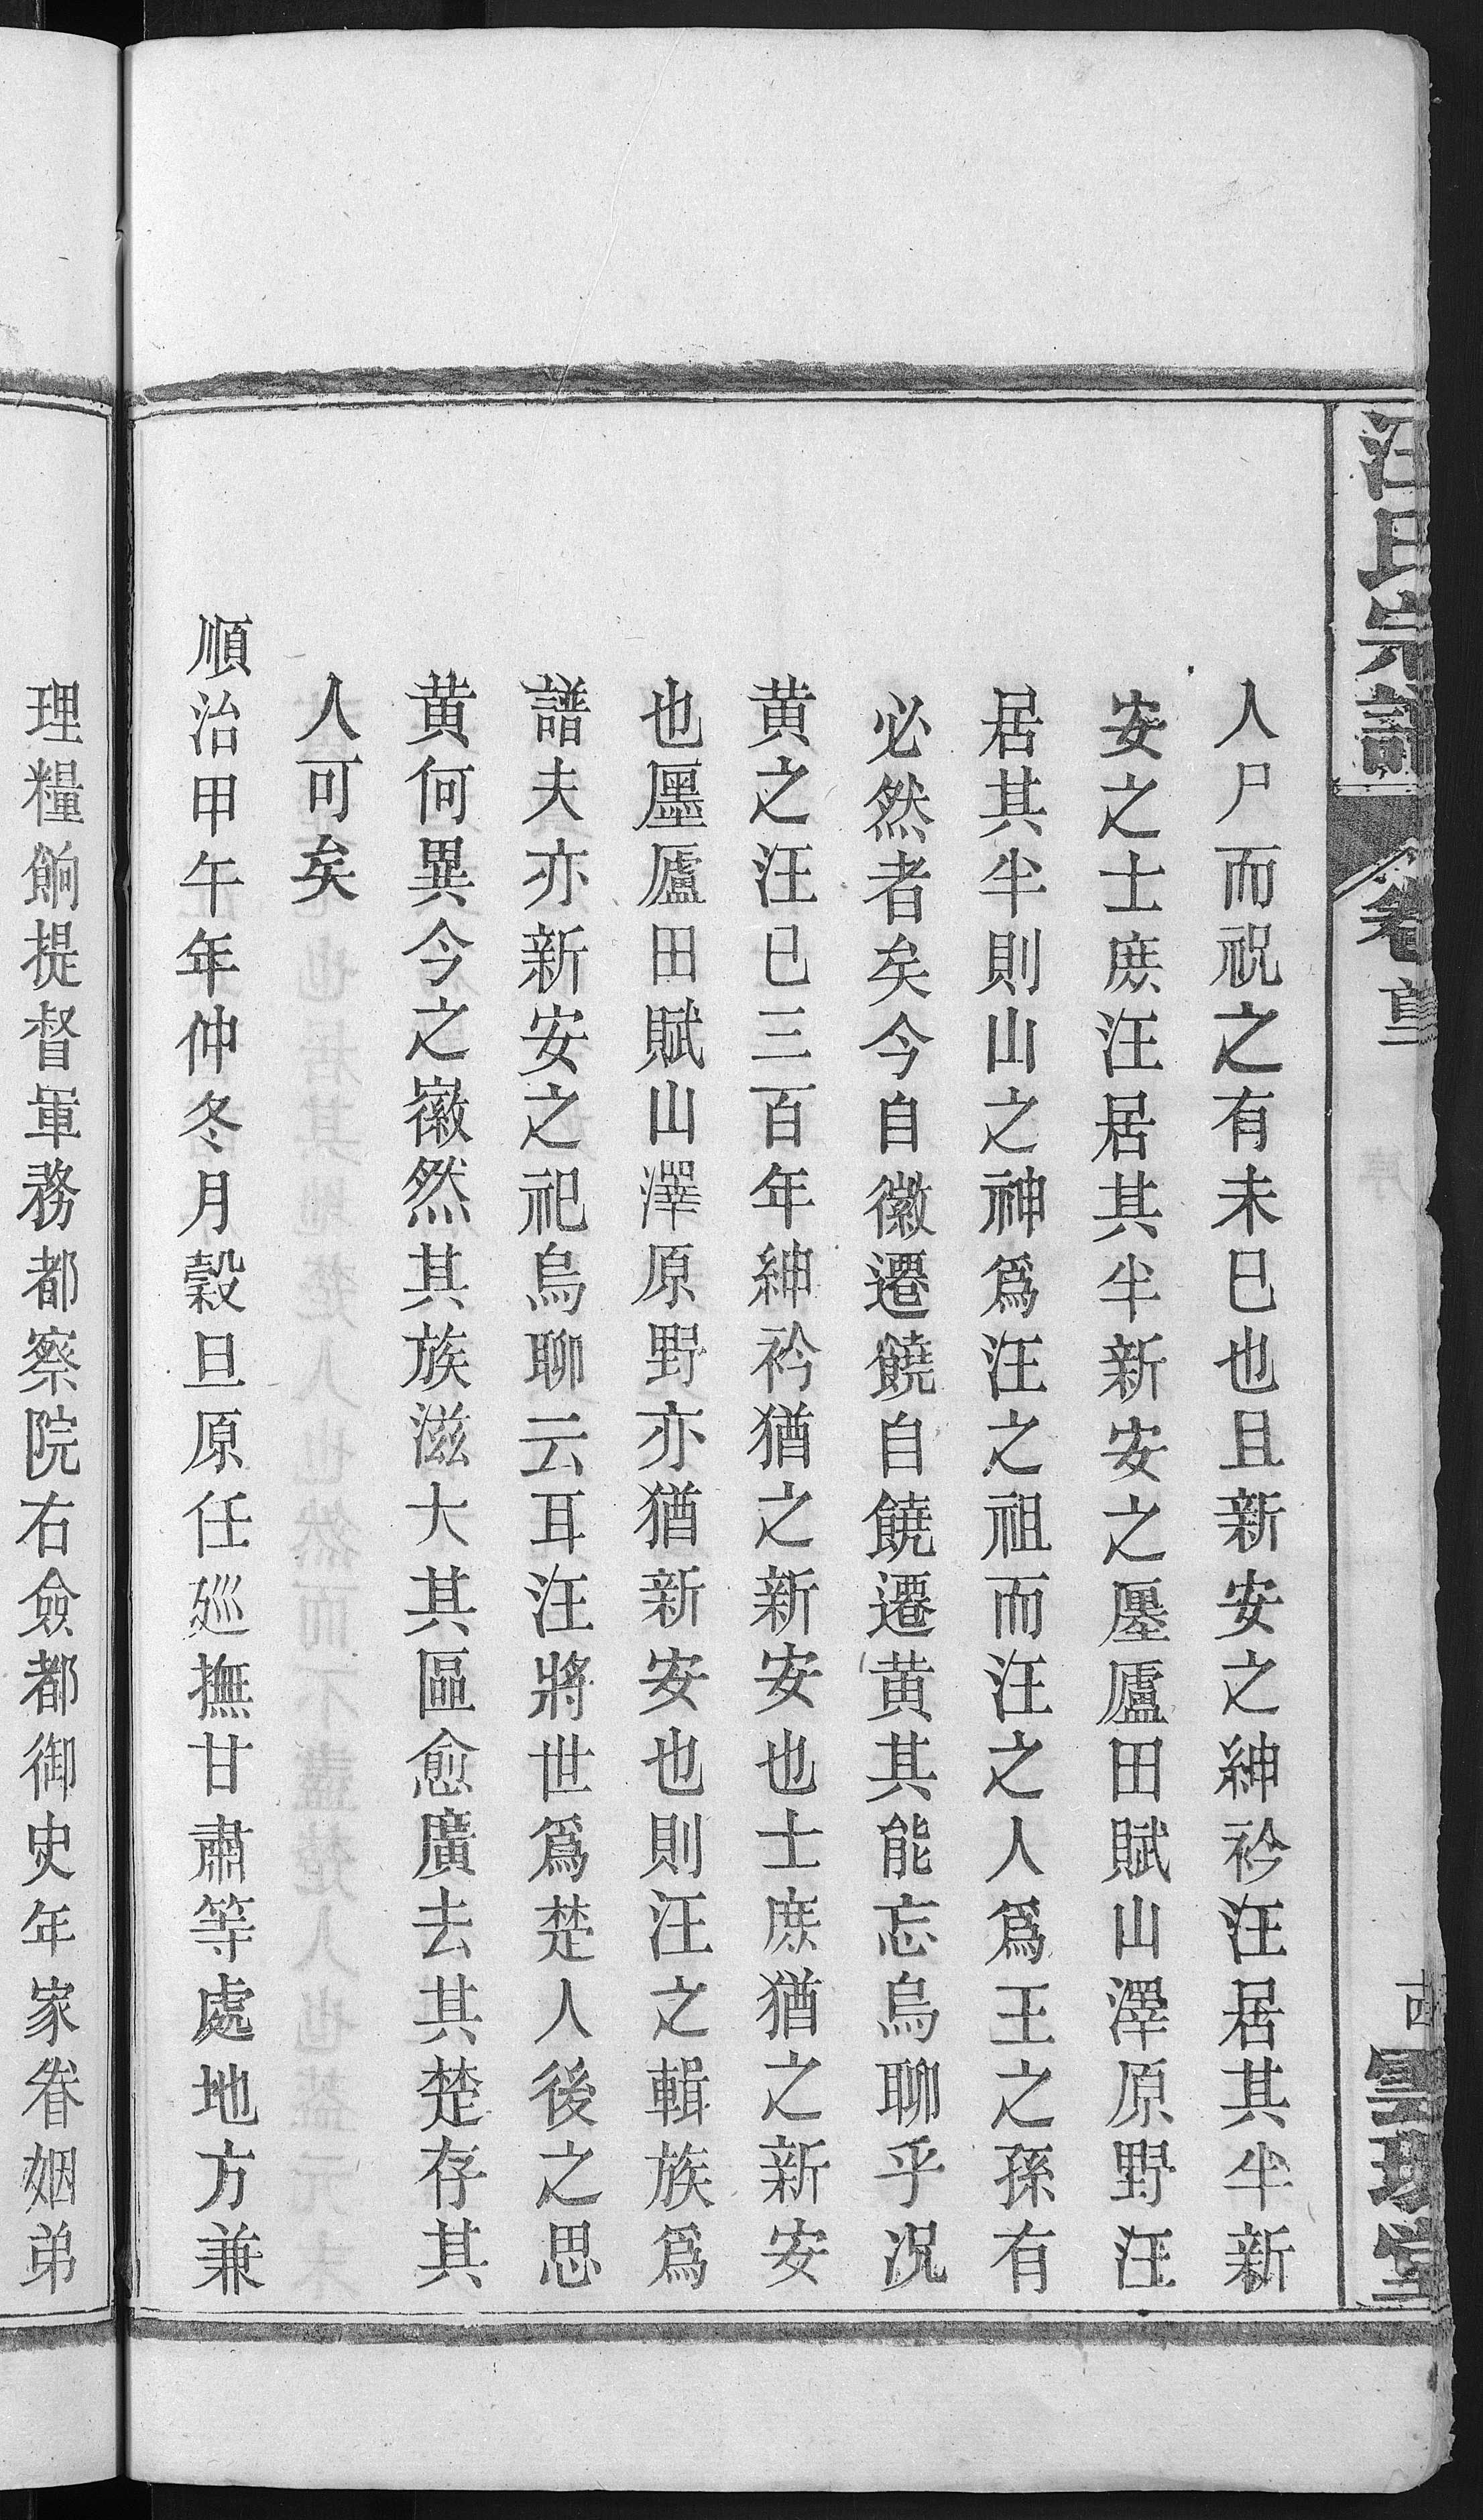 汪氏宗譜
卷首
雲瑞堂
人尸而祝之有未巳也且新安之紳衿汪居其半新
安之士庶汪居其半新安之廛廬田賦山澤原野汪
居其半則山之神爲汪之祖而汪之人爲王之孫有
必然者矣今自徽遷饒自饒遷黃其能忘烏聊乎况
黃之汪巳三百年紳衿猶之新安也士庶猶之新安
也廛廬田賦山澤原野亦猶新安也則汪之輯族爲
譜夫亦新安之祀烏聊云耳汪將世爲楚人後之思
黃何異今之徽然其族滋大其區愈廣去其楚存其
人可矣
順治甲午年仲冬月穀旦原任廵撫甘肅等處地方兼
理糧餉提督軍務都察院右僉都御史年家眷姻弟